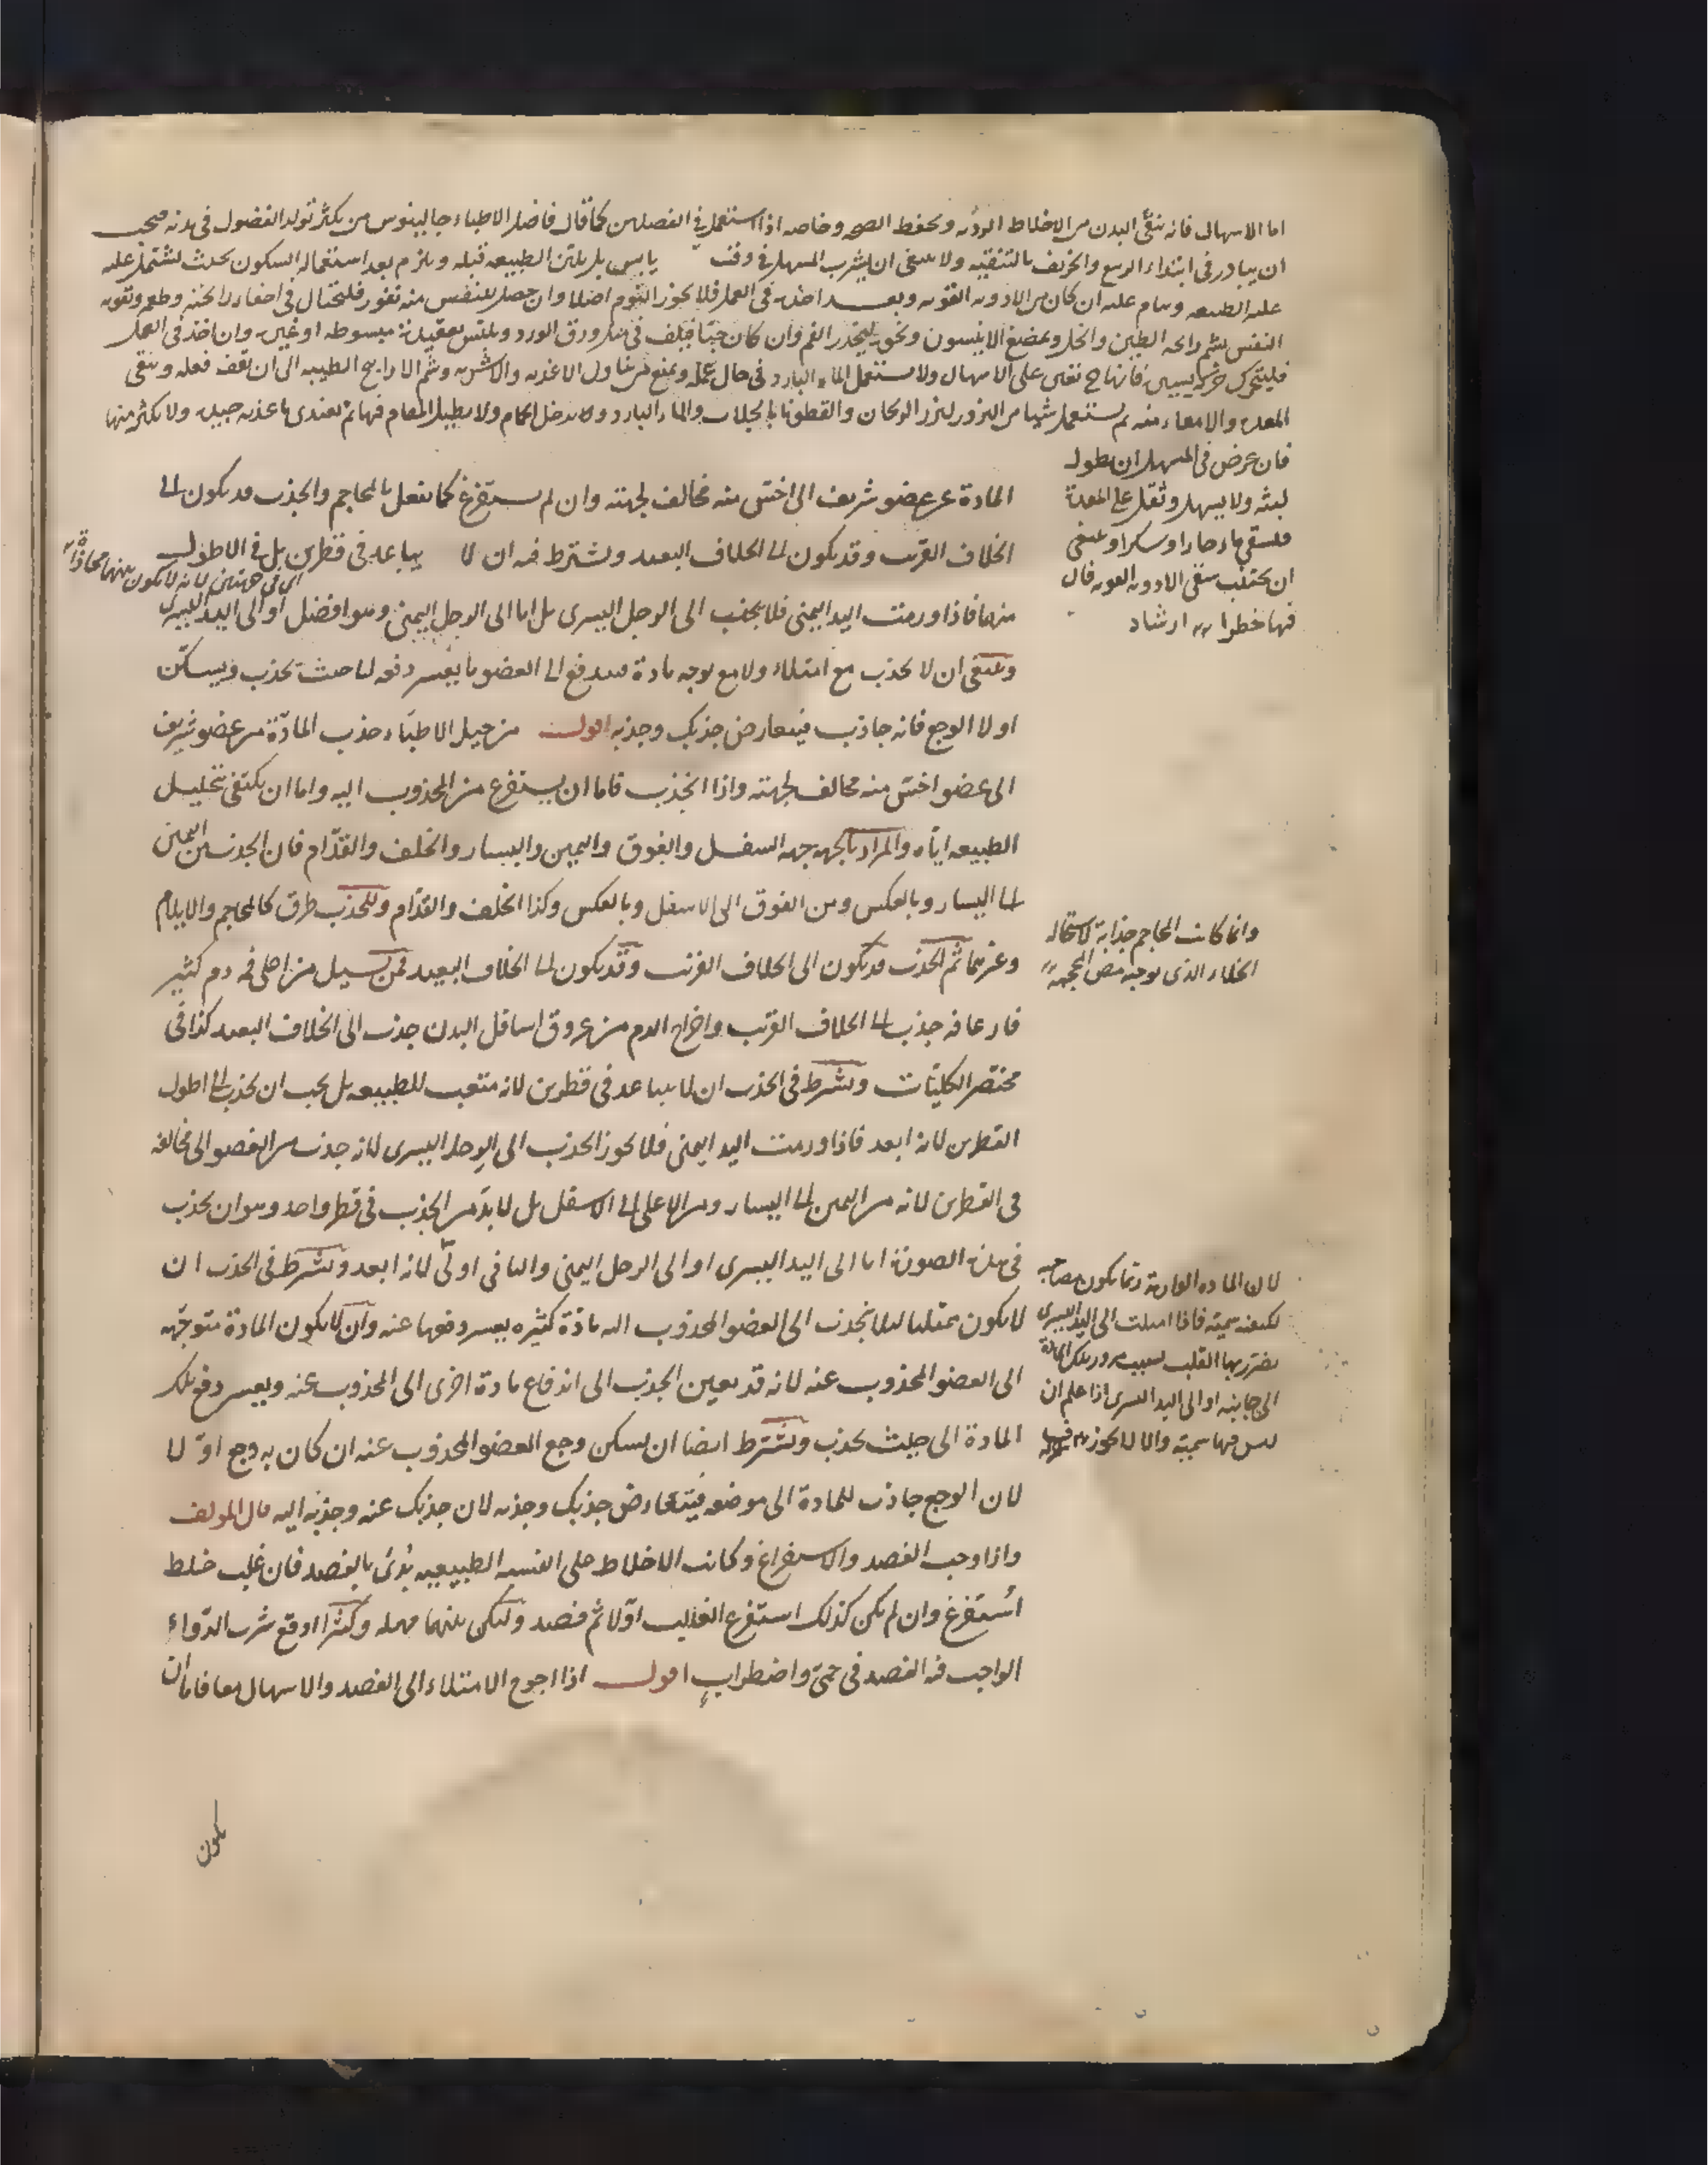 اما الاسهال فانه ينقّى البدن من الاخلاط الرديه ويحفظ الصحه وخاصه اذا استعمل فى الفصلين كما قال فاضل الاطباء جالينوس من يكثر تولد الفضول فى بدنه فيجب
ان يبادر فى ابتداء الربيع والخريف بالتنقيه ولا ينبغى ان يشرب المسهل فى وقت يابس بل يلين الطبيعه قبله ويلزم بعد استعماله السكون بحيث يشتمل عليه
عليه الطبيعه وينام عليه ان كان من الادويه القويه وبعد اخذه فى العمل فلا يجوز النوم اصلا وان حصل للنفس منه نفور فليحتال فى اخفاء رائحته وطعمه وتقويه
النفس بشم رائحه الطين والخل وبمضغ الانيسون ونحوه ليخدر الفم وان كان حبّا فيلف فى مثل ورق الورد ويلتبس بعقيدة مبسوطه او غيره وان اخذ فى العمل
فليتحرك حركه يسيره فانها ح تعين على الاسهال ولا يستعمل الماء البارد فى حال عمله ويمنع من تناول الاغذيه والاشربه وشم الاراييح الطيبه الى ان يقف فعله وينقى
المعده والامعاء منه ثم يستعمل شيئا من البزور كبزر الريحان والقطونا بالجلاب والماء البارد ولا يدخل الحمام ولا يطيل المقام فيها ثم يغتذى باغذيه جيده ولا يكثر منها
فان عرض فى المسهل ان يطول
لبثه ولا يسهل وثقل على المعدة
فليسقى ماء حارا وسكرا وينبغى
ان يجتنب سقى الادويه القويه فان
فيها خطرا ارشاد
المادة عن عضو شريف الى اخسّ منه مخالف لجهته وان لم يستفرغ كما يفعل بالمحاجم والجذب قد يكون الى
الخلاف القريب وقد يكون الى الخلاف البعيد ويشترط فيه ان لا يباعد فى قطرين بل فى الاطول
اى فى جهتين لانه لا يكون بينهما محاذاة
منهما فاذا ورمت اليد اليمنى فلا يجذب الى الرجل اليسرى بل اما الى الرجل اليمنى وهو افضل او الى اليد اليسرى
وينبغى ان لا يجذب مع امتلاء ولا مع توجه مادة فيندفع الى العضو ما يعسر دفعه الى حيث يجذب ويسكّن
اولا الوجع فانه جاذب فيتعارض جذبك وجذبه اقول من حيل الاطبّاء جذب المادّة من عضو شريف
الى عضو اخسّ منه مخالف لجهته واذا انجذب فاما ان يستفرغ من المجذوب اليه واما ان يكتفى بتحليل
الطبيعه ايّاه والمراد بالجهه جهه السفل والفوق واليمين واليسار والخلف والقدّام فان الجذب من اليمين
الى اليسار وبالعكس ومن الفوق الى الاسفل وبالعكس وكذا الخلف والقدّام وللجذب طرق كالمحاجم والايلام
وغيرهما ثم الجذب قد يكون الى الخلاف القريب وقد يكون الى الخلاف البعيد فمن يسيل من اعلى فمه دم كثير
فارعافه جذب الى الخلاف القريب واخراج الدم من عروق اسافل البدن جذب الى الخلاف البعيد كذا فى
مختصر الكليّات ويشترط فى الجذب ان لا يباعد فى قطرين لانه متعب للطبيعه بل يجب ان يجذب الى اطول
القطرين لانه ابعد فاذا ورمت اليد اليمنى فلا يجوز الجذب الى الرجل اليسرى لانه جذب من العضو الى مخالفه
فى القطرين لانه من اليمين الى اليسار ومن الاعلى الى الاسفل بل لا بدّ من الجذب فى قطر واحد وهو ان يجذب
فى هذه الصورة اما الى اليد اليسرى او الى الرجل اليمنى والثانى اولى لانه ابعد ويشترط فى الجذب ان
لا يكون ممتلئا لئلا ينجذب الى العضو المجذوب اليه مادّة كثيره يعسر دفعها عنه وان لا يكون المادة متوجّهه
الى العضو المجذوب عنه لانه قد يعين الجذب الى اندفاع مادة اخرى الى المجذوب عنه ويعسر دفع تلك
المادة الى حيث يجذب ويشترط ايضا ان يسكن وجع العضو المجذوب عنه ان كان به وجع اوّلا
لان الوجع جاذب للمادة الى موضعه فيتعارض جذبك وجذبه لان جذبك عنه وجذبه اليه قال المولف
واذا وجب الفصد والاستفراغ وكانت الاخلاط على النسبه الطبيعيه بُدئ بالفصد فان غلب خلط
استُفرغ وان لم يكن كذلك استفرغ الغالب اوّلا ثم فصد وليكن بينهما مهله وكثيرا اوقع شرب الدّواء
الواجب فيه الفصد فى حمّى واضطراب اقول اذا احوج الامتلاء الى الفصد والاسهال معا فاما ان
وانما كانت المحاجم جذابة لاستحاله
الخلاء الذى يوجبه مص المحجمه
لان الماده الوارمة ربما يكون مصاحبه
لكيفيه سميّه فاذا اميلت الى اليد اليسرى
يضرّ بها القلب بسبب مرور تلك المادة
الى جانبه او الى اليد اليسرى اذا علم ان
ليس فيها سميّه والا لا يجوز
يكون